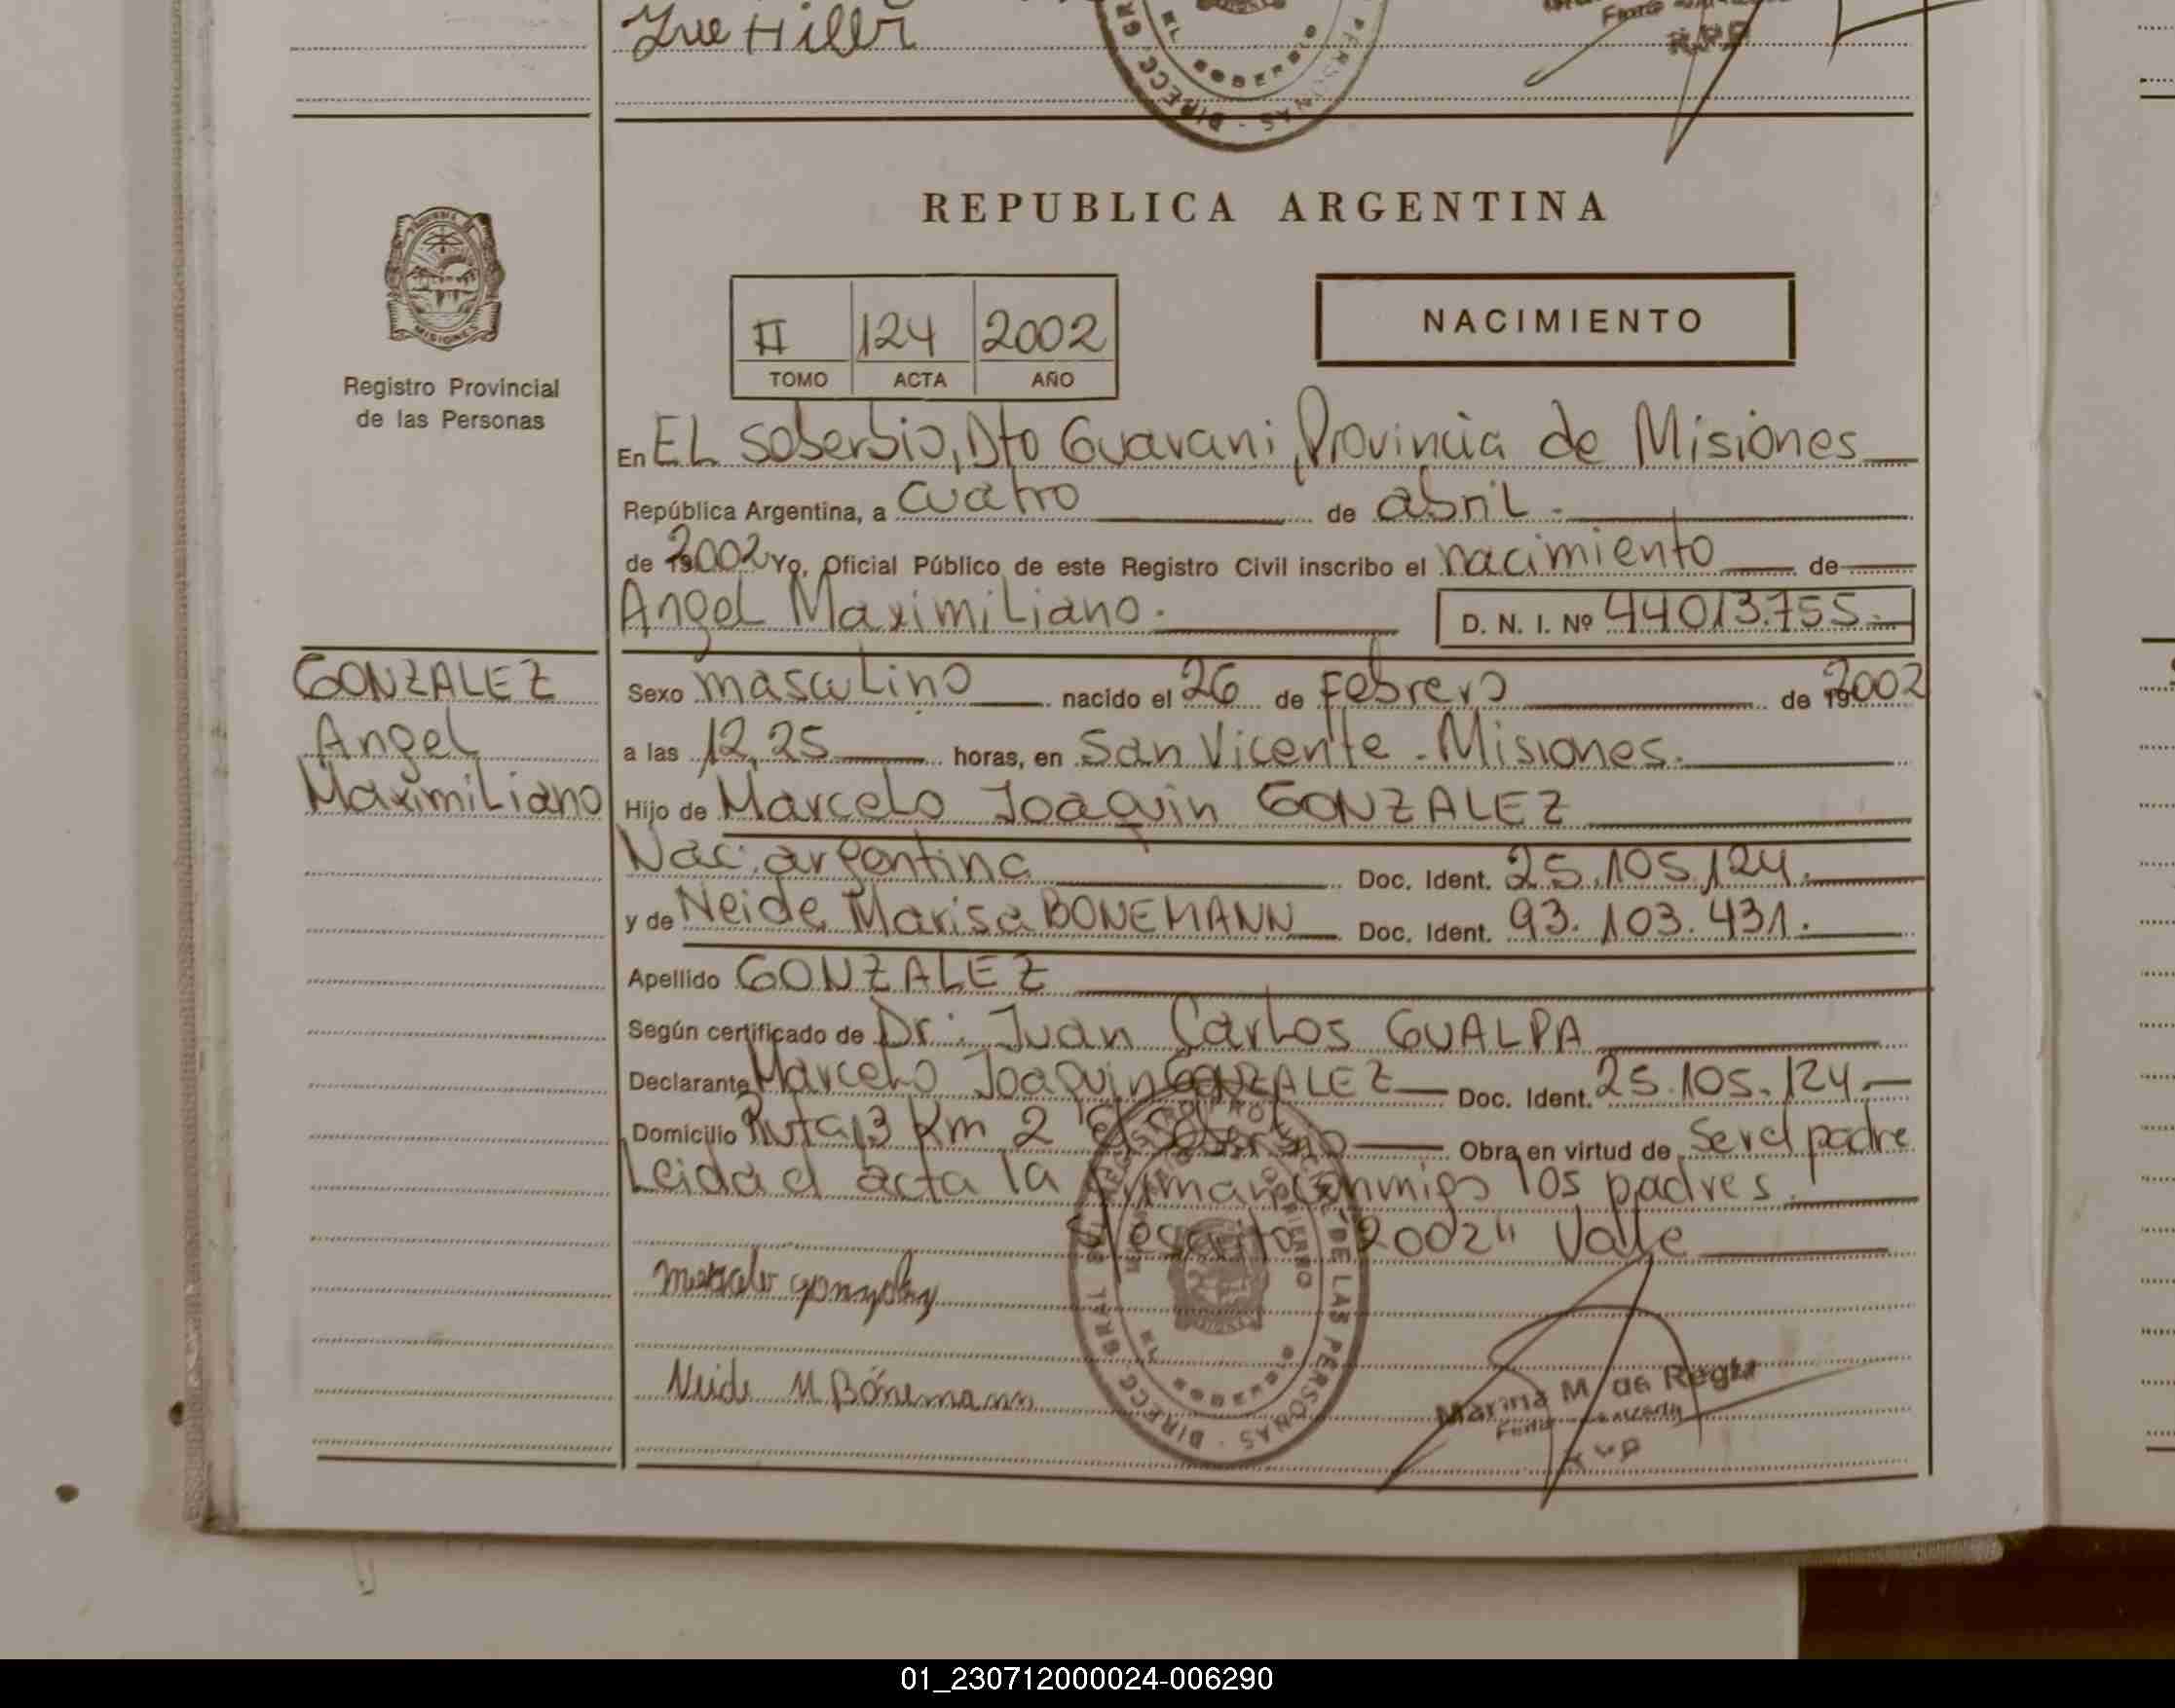 Ive Hiller
R.P.P
DIRECC. GRAL
DE LAS PERSONAS
EL SOBERBIO
REPUBLICA ARGENTINA
MISIONES
Registro Provincial
de las Personas
II 124 2002
TOMO ACTA AÑO
NACIMIENTO
En EL Soberbio, Dto Guarani, Provincia de Misiones
República Argentina, a cuatro de abril.
de 2002 Yo, Oficial Público de este Registro Civil inscribo el nacimiento de
Angel Maximiliano. D. N. I. Nº 44013.755.
GONZALEZ
Angel
Maximiliano
Sexo masculino nacido el 26 de Febrero de 192002
a las 12,25 horas, en San Vicente - Misiones.
Hijo de Marcelo Joaquin GONZALEZ
Nac: argentina Doc. Ident. 25.105.124.
y de Neide Marisa BONEMANN Doc. Ident. 93.103.431.
Apellido GONZALEZ
Según certificado de Dr: Juan Carlos GUALPA
Declarante Marcelo Joaquin GONZALEZ Doc. Ident. 25.105.124.
Domicilio Ruta 13 Km 2 El Soberbio Obra en virtud de ser el padre
Leida el acta la firman conmigo los padres.
S/escrito "2002" Vale
REGISTRO PROVINCIAL DE LAS PERSONAS - DIRECC. GRAL
EL SOBERBIO
Marcelo Gonzalez
Neide M Bönemann
Marina M. de Regis
01_230712000024-006290